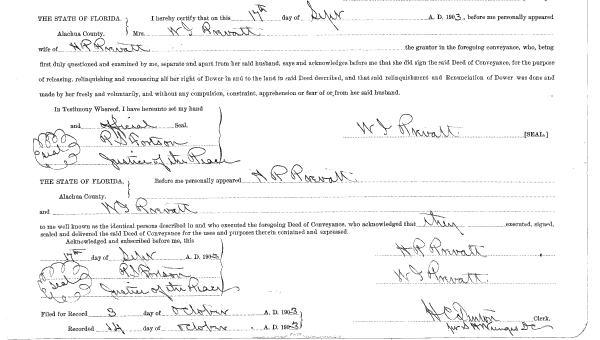 THE STATE OF FLORIDA. } I hereby certify that on this 17th day of Sept A. D. 1903, before me personally appeared
Alachua County. Mrs. W I Prevatt
wife of H P Prevatt the grantor in the foregoing conveyance, who, being
first duly questioned and examined by me, separate and apart from her said husband, says and acknowledges before me that she did sign the said Deed of Conveyance, for the purpose
of releasing, relinquishing and renouncing all her right of Dower in and to the land in said Deed described, and that said relinquishment and Renunciation of Dower was done and
made by her freely and voluntarily, and without any compulsion, constraint, apprehension or fear of or from her said husband.
In Testimony Whereof, I have hereunto set my hand
and official Seal. W I Prevatt [SEAL.]
Seal R S Fortson
Justice of the Peace
THE STATE OF FLORIDA. } Before me personally appeared H P Prevatt
Alachua County.
and W I Prevatt
to me well known as the identical persons described in and who executed the foregoing Deed of Conveyance, who acknowledged that they executed, signed,
sealed and delivered the said Deed of Conveyance for the uses and purposes therein contained and expressed.
Acknowledged and subscribed before me, this H P Prevatt
17th day of Sept A. D. 1903
Seal R S Fortson W I Prevatt
Justice of the Peace
Filed for Record 3 day of October A. D. 1903 H C Denton Clerk.
Recorded 14 day of October A. D. 1903 D C